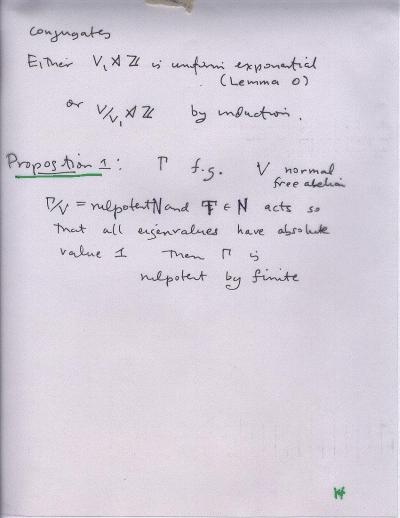 conjugates
Either V₁ ⋊ ℤ is uniform exponential
(Lemma 0)
or V/V₁ ⋊ ℤ by induction.
Proposition 1: Γ f.g. V normal
free abelian
Γ/V = nilpotent N and ∈ N acts so
that all eigenvalues have absolute
value 1 Then Γ is
nilpotent by finite
14